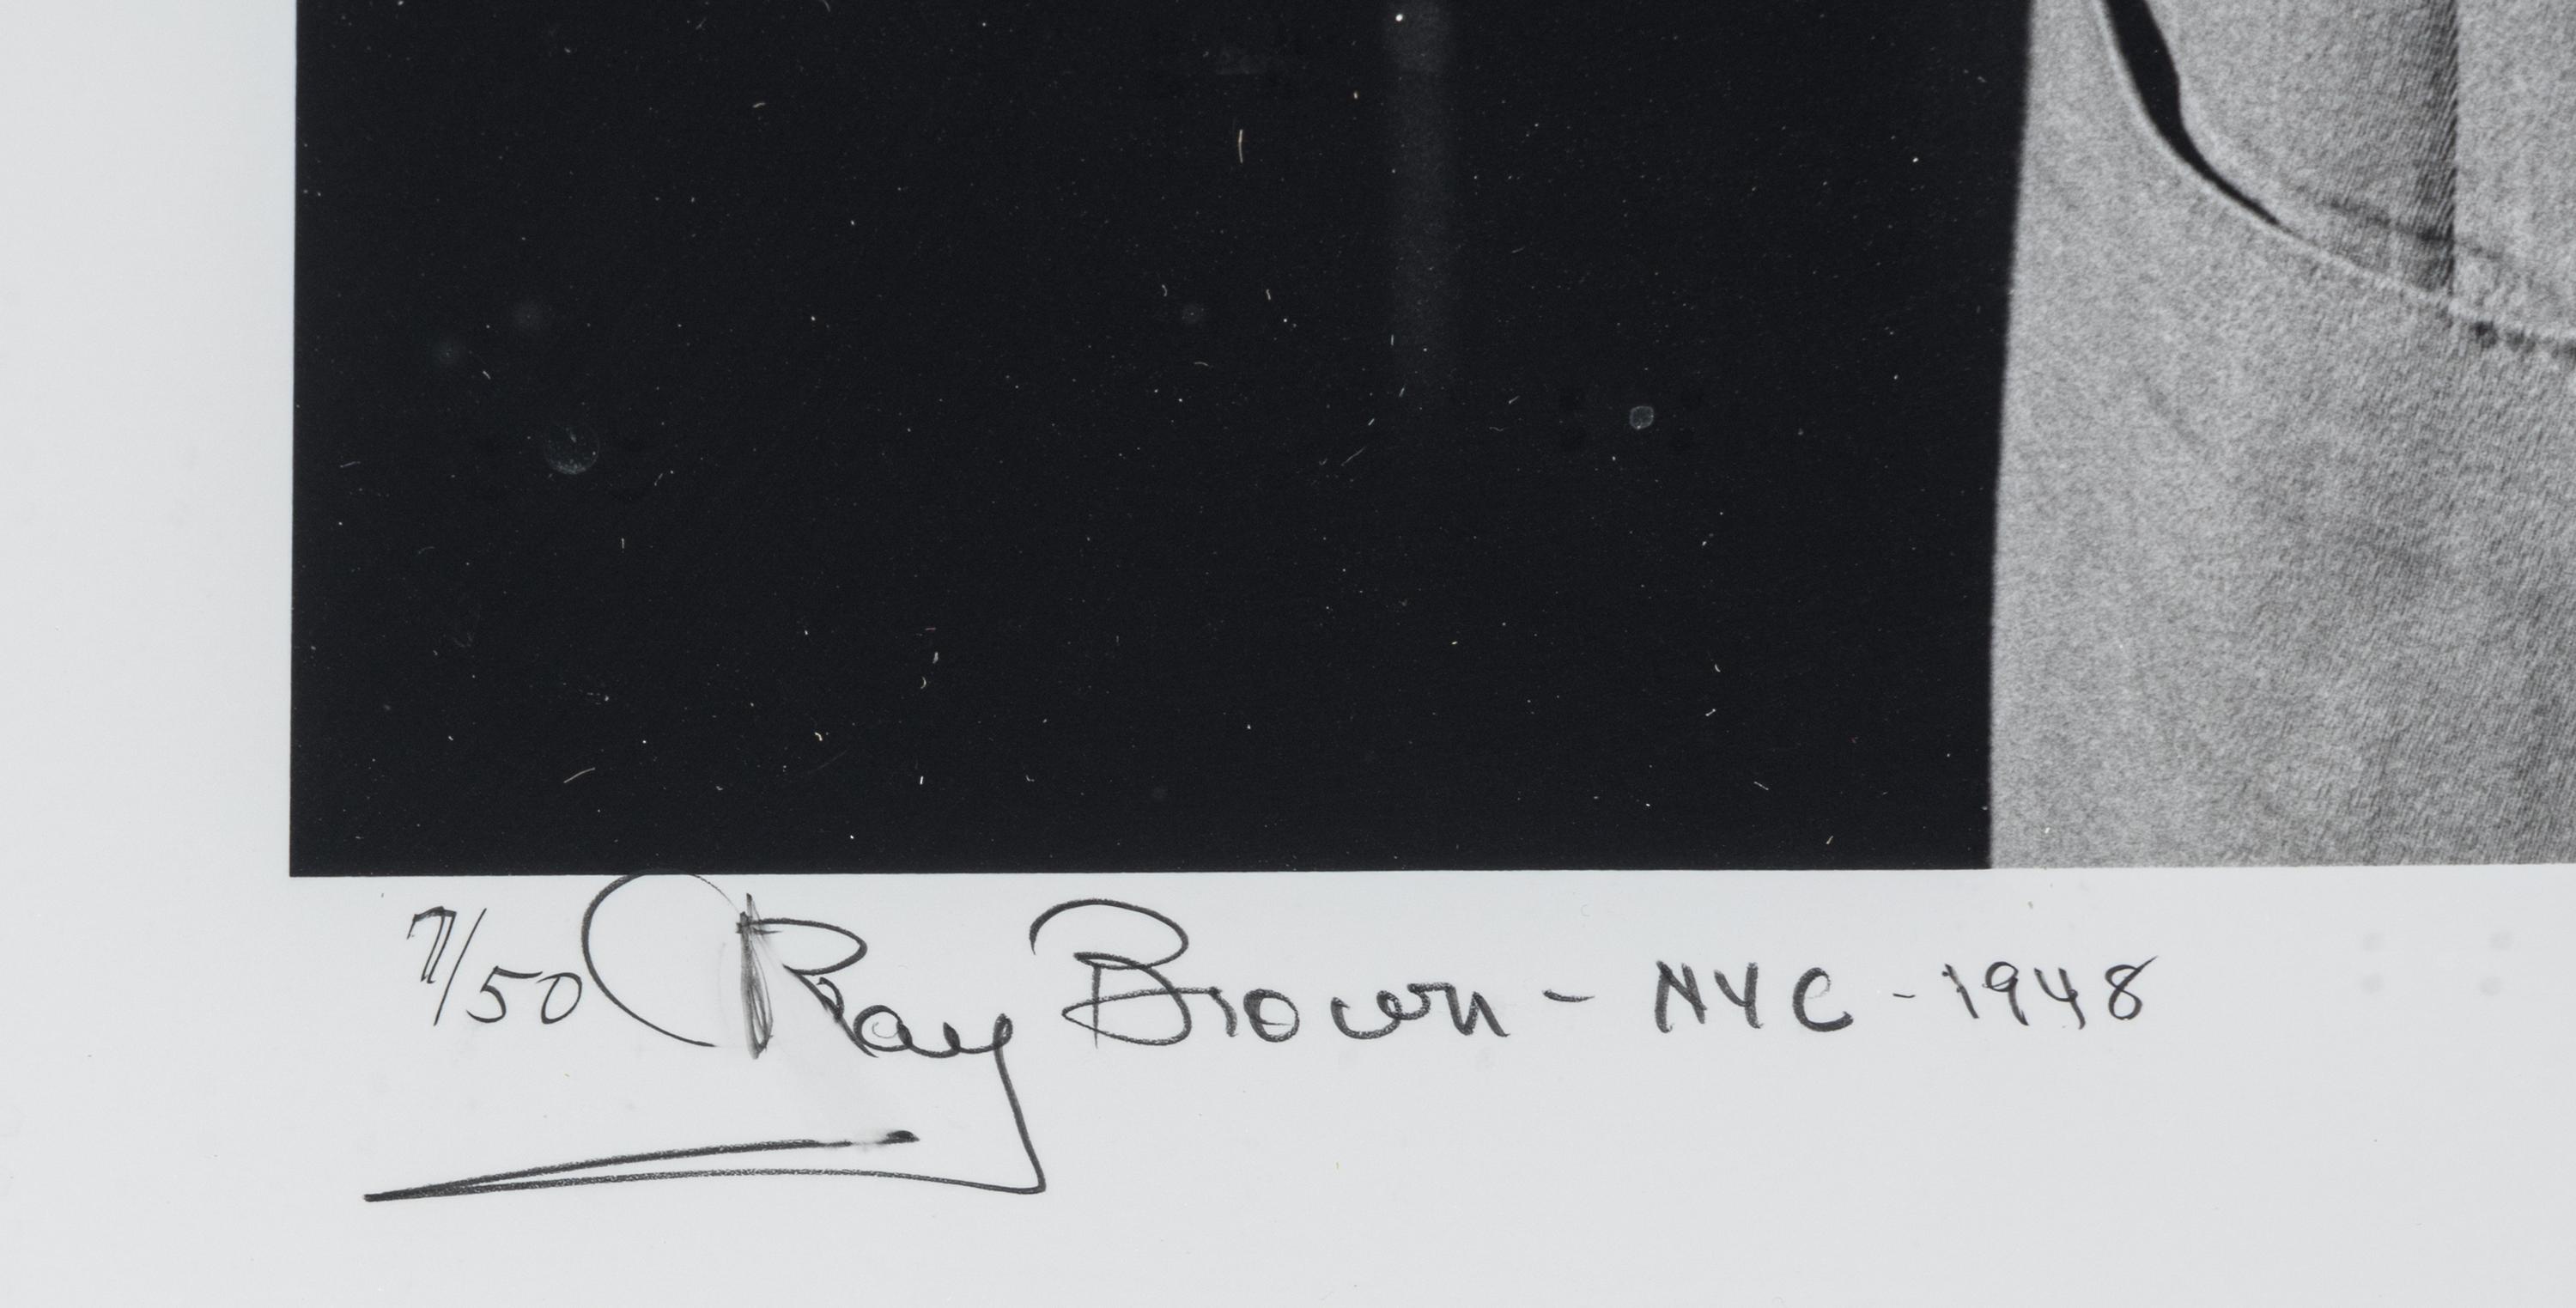 7/50 Ray Brown - NYC - 1948